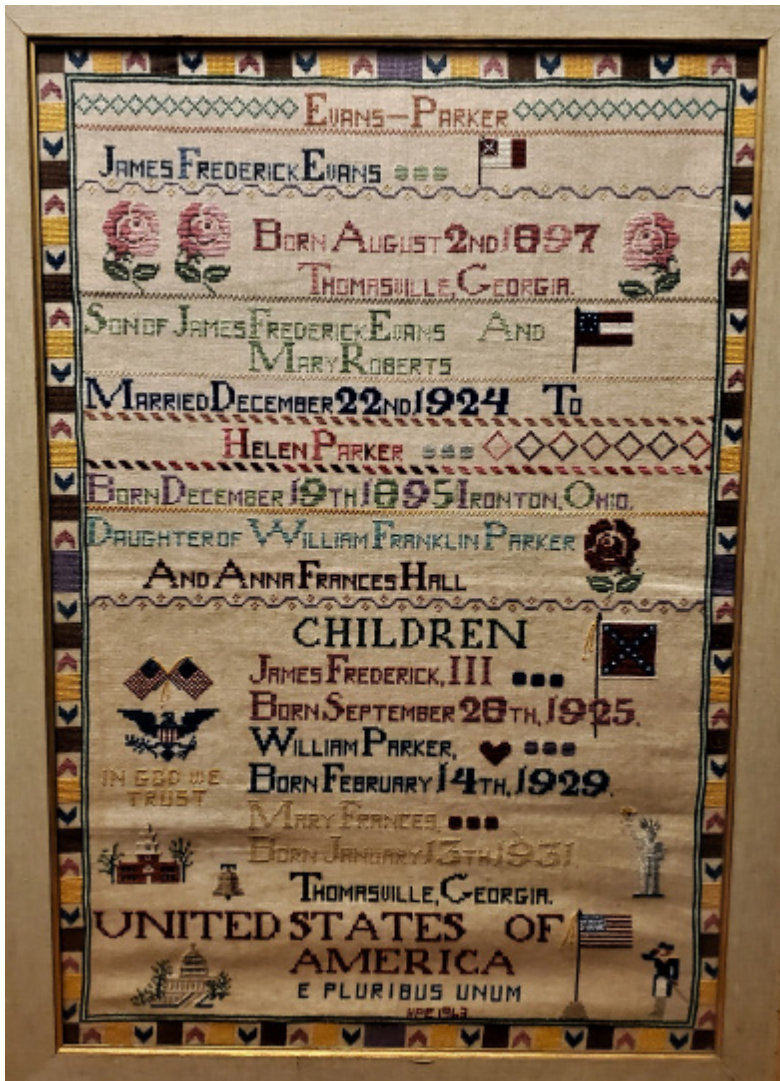 EVANS-PARKER
JAMES FREDERICK EVANS
BORN AUGUST 2ND 1897
THOMASVILLE, GEORGIA.
SON OF JAMES FREDERICK EVANS AND
MARY ROBERTS
MARRIED DECEMBER 22ND 1924 TO
HELEN PARKER
BORN DECEMBER 19TH 1895 IRONTON, OHIO,
DAUGHTER OF WILLIAM FRANKLIN PARKER
AND ANNA FRANCES HALL
CHILDREN
JAMES FREDERICK, III
BORN SEPTEMBER 28TH, 1925.
WILLIAM PARKER,
BORN FEBRUARY 14TH, 1929.
IN GOD WE
TRUST
MARY FRANCES,
BORN JANUARY 13TH 1931
THOMASVILLE, GEORGIA.
UNITED STATES OF
AMERICA
E PLURIBUS UNUM
HPE 1963